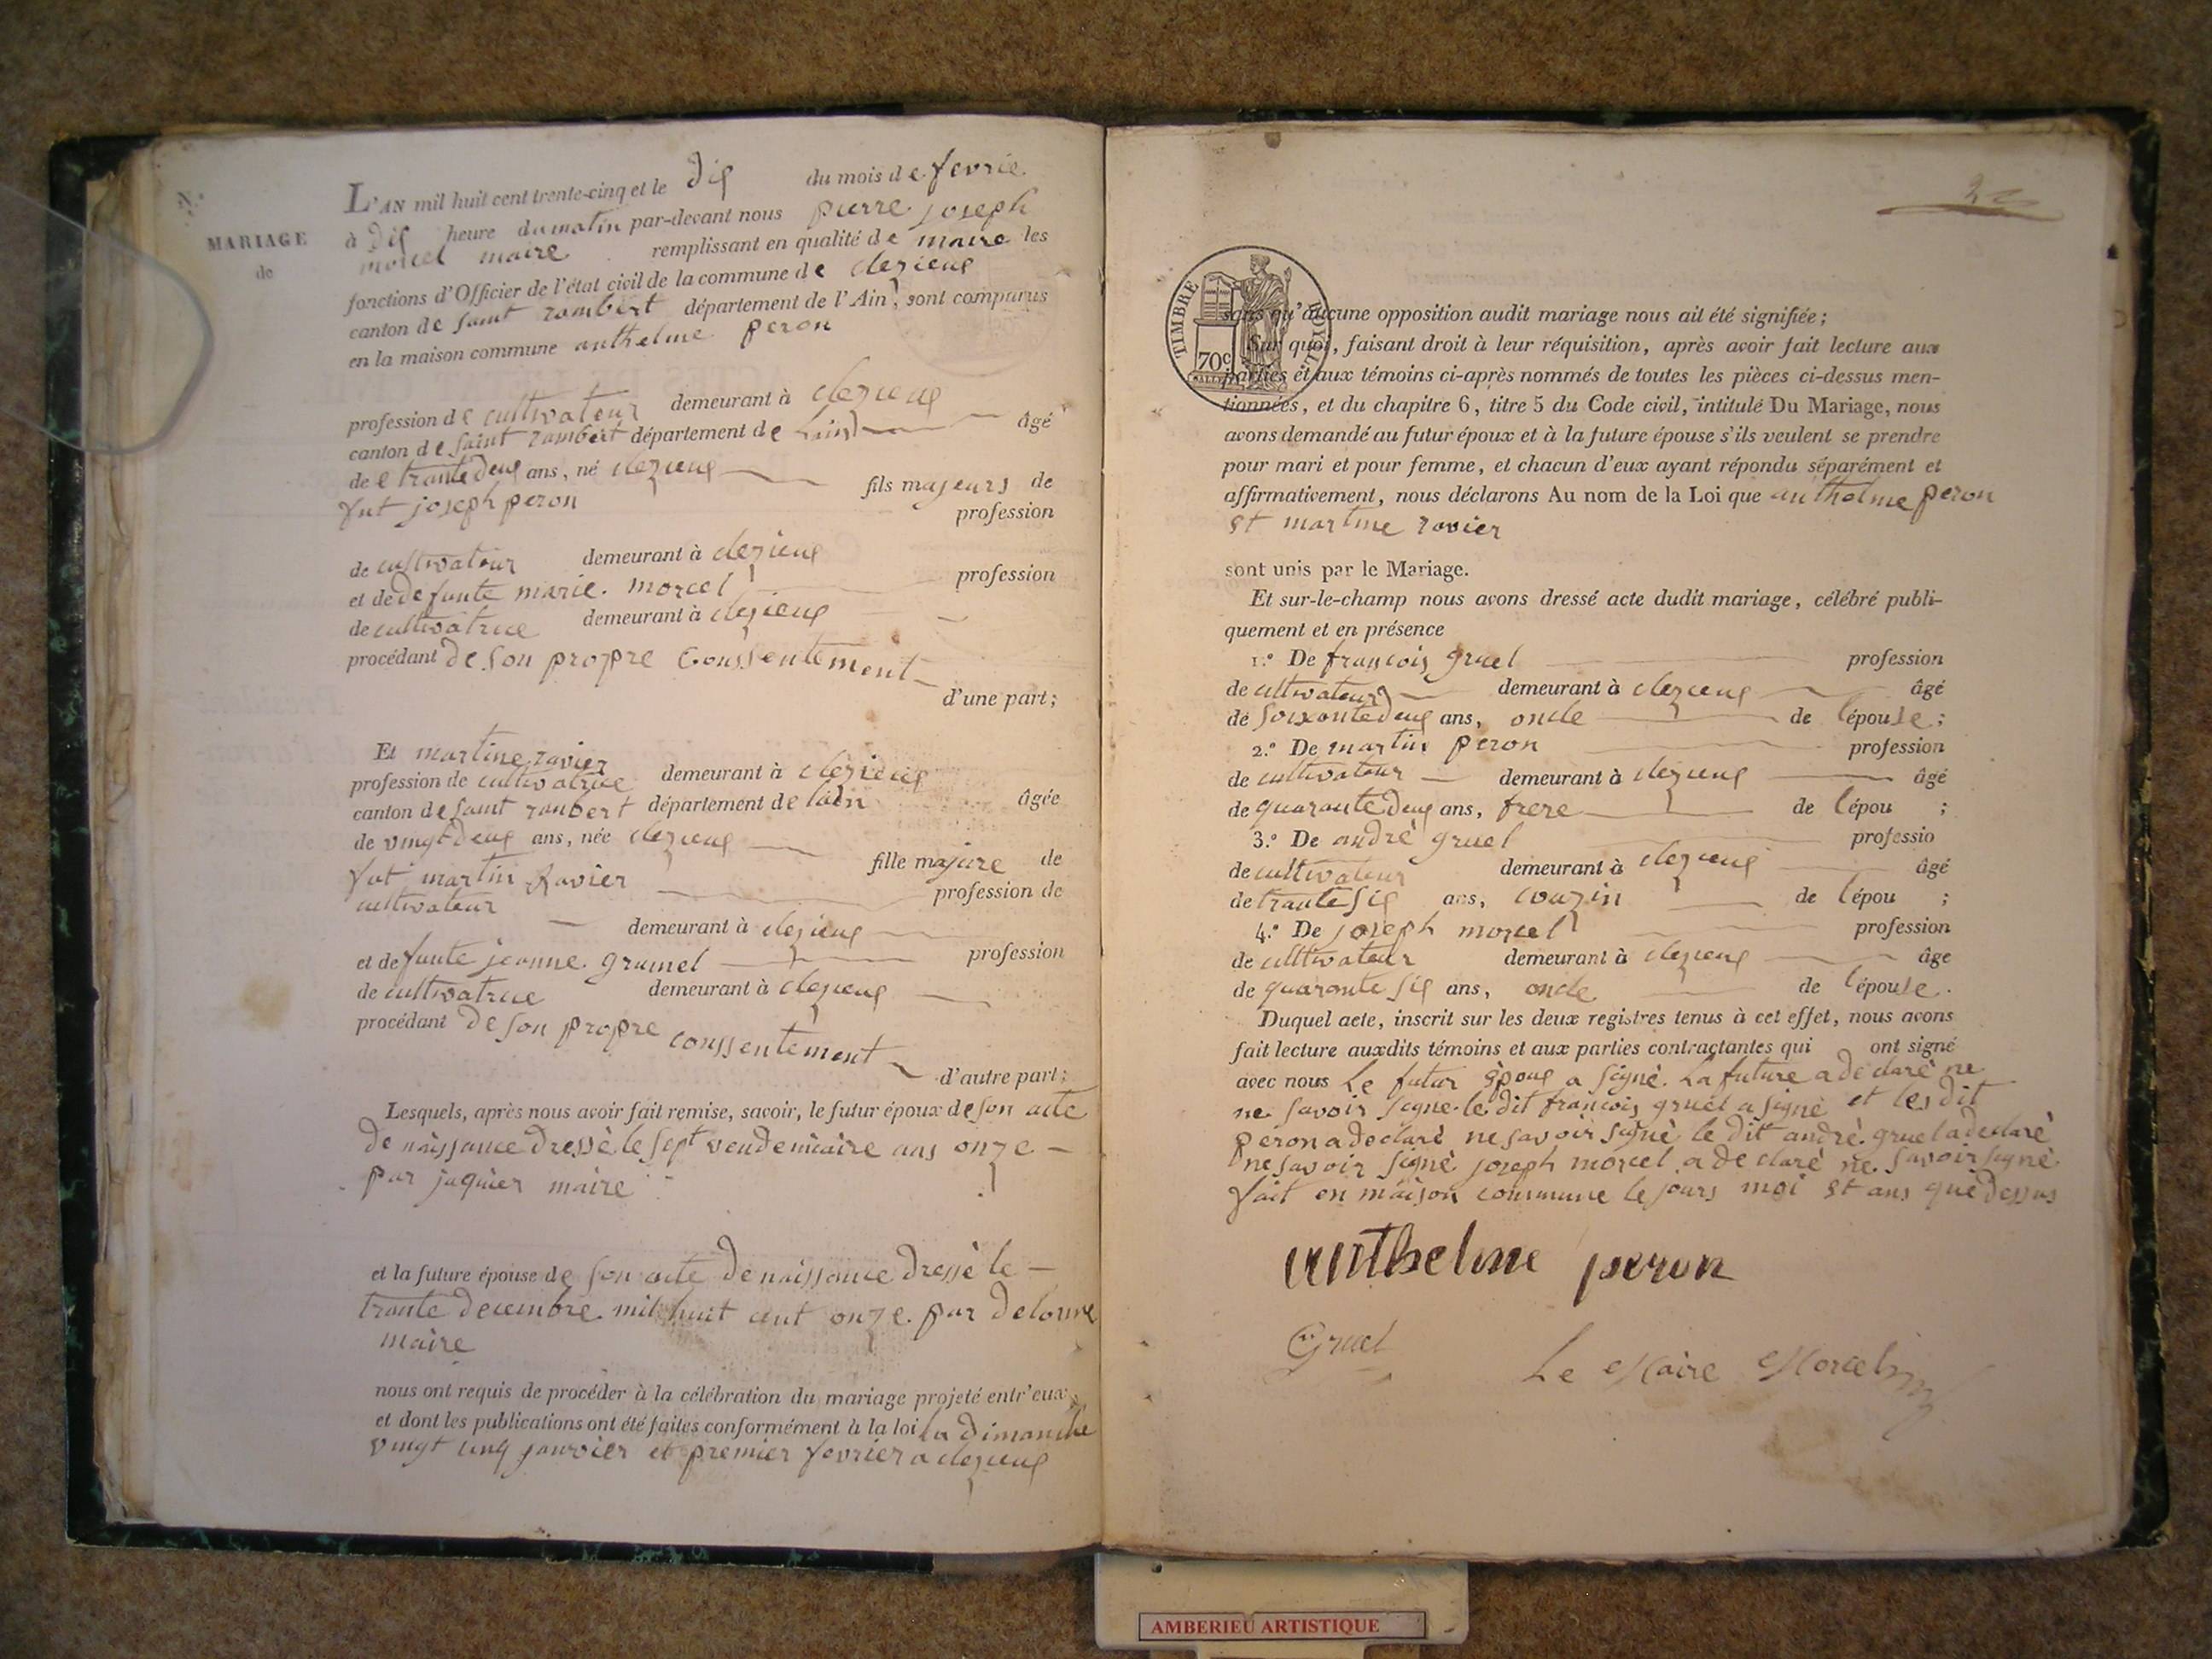 N.º
MARIAGE
de
L'AN mil huit cent trente-cinq et le dix du mois de fevrie
à dix heure du matin par-devant nous pierre joseph
morcel maire remplissant en qualité de maire les
fonctions d'Officier de l'état civil de la commune de clezieux
canton de saint rambert département de l'Ain, sont comparus
en la maison commune anthelme peron
profession de cultivateur demeurant à clezieux
canton de saint rambert département de Lain âgé
de trante deux ans, né clezieux fils majeurs de
fut joseph peron profession
de cultivateur demeurant à clezieux
et de defunte marie morcel profession
de cultivatrice demeurant à clezieux
procédant de son propre conssentement
d'une part;
Et martine ravier
profession de cultivatrice demeurant à clezieux
canton de saint rambert département de lain âgée
de vingt deux ans, née clezieux fille majure de
fut martin Ravier profession de
cultivateur demeurant à clezieux
et de funte jeanne grumel profession
de cultivatrice demeurant à clezieux
procédant de son propre conssentement
d'autre part;
Lesquels, après nous avoir fait remise, savoir, le futur époux de son acte
de naissance dressé le sept vendemiaire ans onze
par jaquier maire
et la future épouse de son acte de naissance dressé le
trante decembre mil huit cent onze par delorme
maire
nous ont requis de procéder à la célébration du mariage projeté entr'eux
et dont les publications ont été faites conformément à la loi la dimanche
vingt cinq janvier et premier fevrier a clezieux
TIMBRE ROYAL
70c
sans qu'aucune opposition audit mariage nous ait été signifiée;
Sur quoi, faisant droit à leur réquisition, après avoir fait lecture aux
parties et aux témoins ci-après nommés de toutes les pièces ci-dessus men-
tionnées, et du chapitre 6, titre 5 du Code civil, intitulé Du Mariage, nous
avons demandé au futur époux et à la future épouse s'ils veulent se prendre
pour mari et pour femme, et chacun d'eux ayant répondu séparément et
affirmativement, nous déclarons Au nom de la Loi que anthelme peron
et martine ravier
sont unis par le Mariage.
Et sur-le-champ nous avons dressé acte dudit mariage, célébré publi-
quement et en présence
1.º De françois gruel profession
de cultivateur demeurant à clezieux âgé
de soixante deux ans, oncle de lépouse;
2.º De martin peron profession
de cultivateur demeurant à clezieux âgé
de quarante deux ans, frere de lépou ;
3.º De andré gruel professio
de cultivateur demeurant à clezieux âgé
de trante six ans, couzin de lépou ;
4.º De joseph morcel profession
de cultivateur demeurant à clezieux âge
de quarante six ans, oncle de lépouse.
Duquel acte, inscrit sur les deux registres tenus à cet effet, nous avons
fait lecture auxdits témoins et aux parties contractantes qui ont signé
avec nous Le futur époux a signé. La future a déclaré ne
ne savoir signe. le dit françois gruel a signé et les dit
peron a declaré ne savoir signé le dit andré gruel a declaré
ne savoir signé joseph morcel a declaré ne savoir signé
fait en maison commune le jours moi et ans que dessus
anthelme peron
Gruel
Le Maire Morcel
AMBERIEU ARTISTIQUE